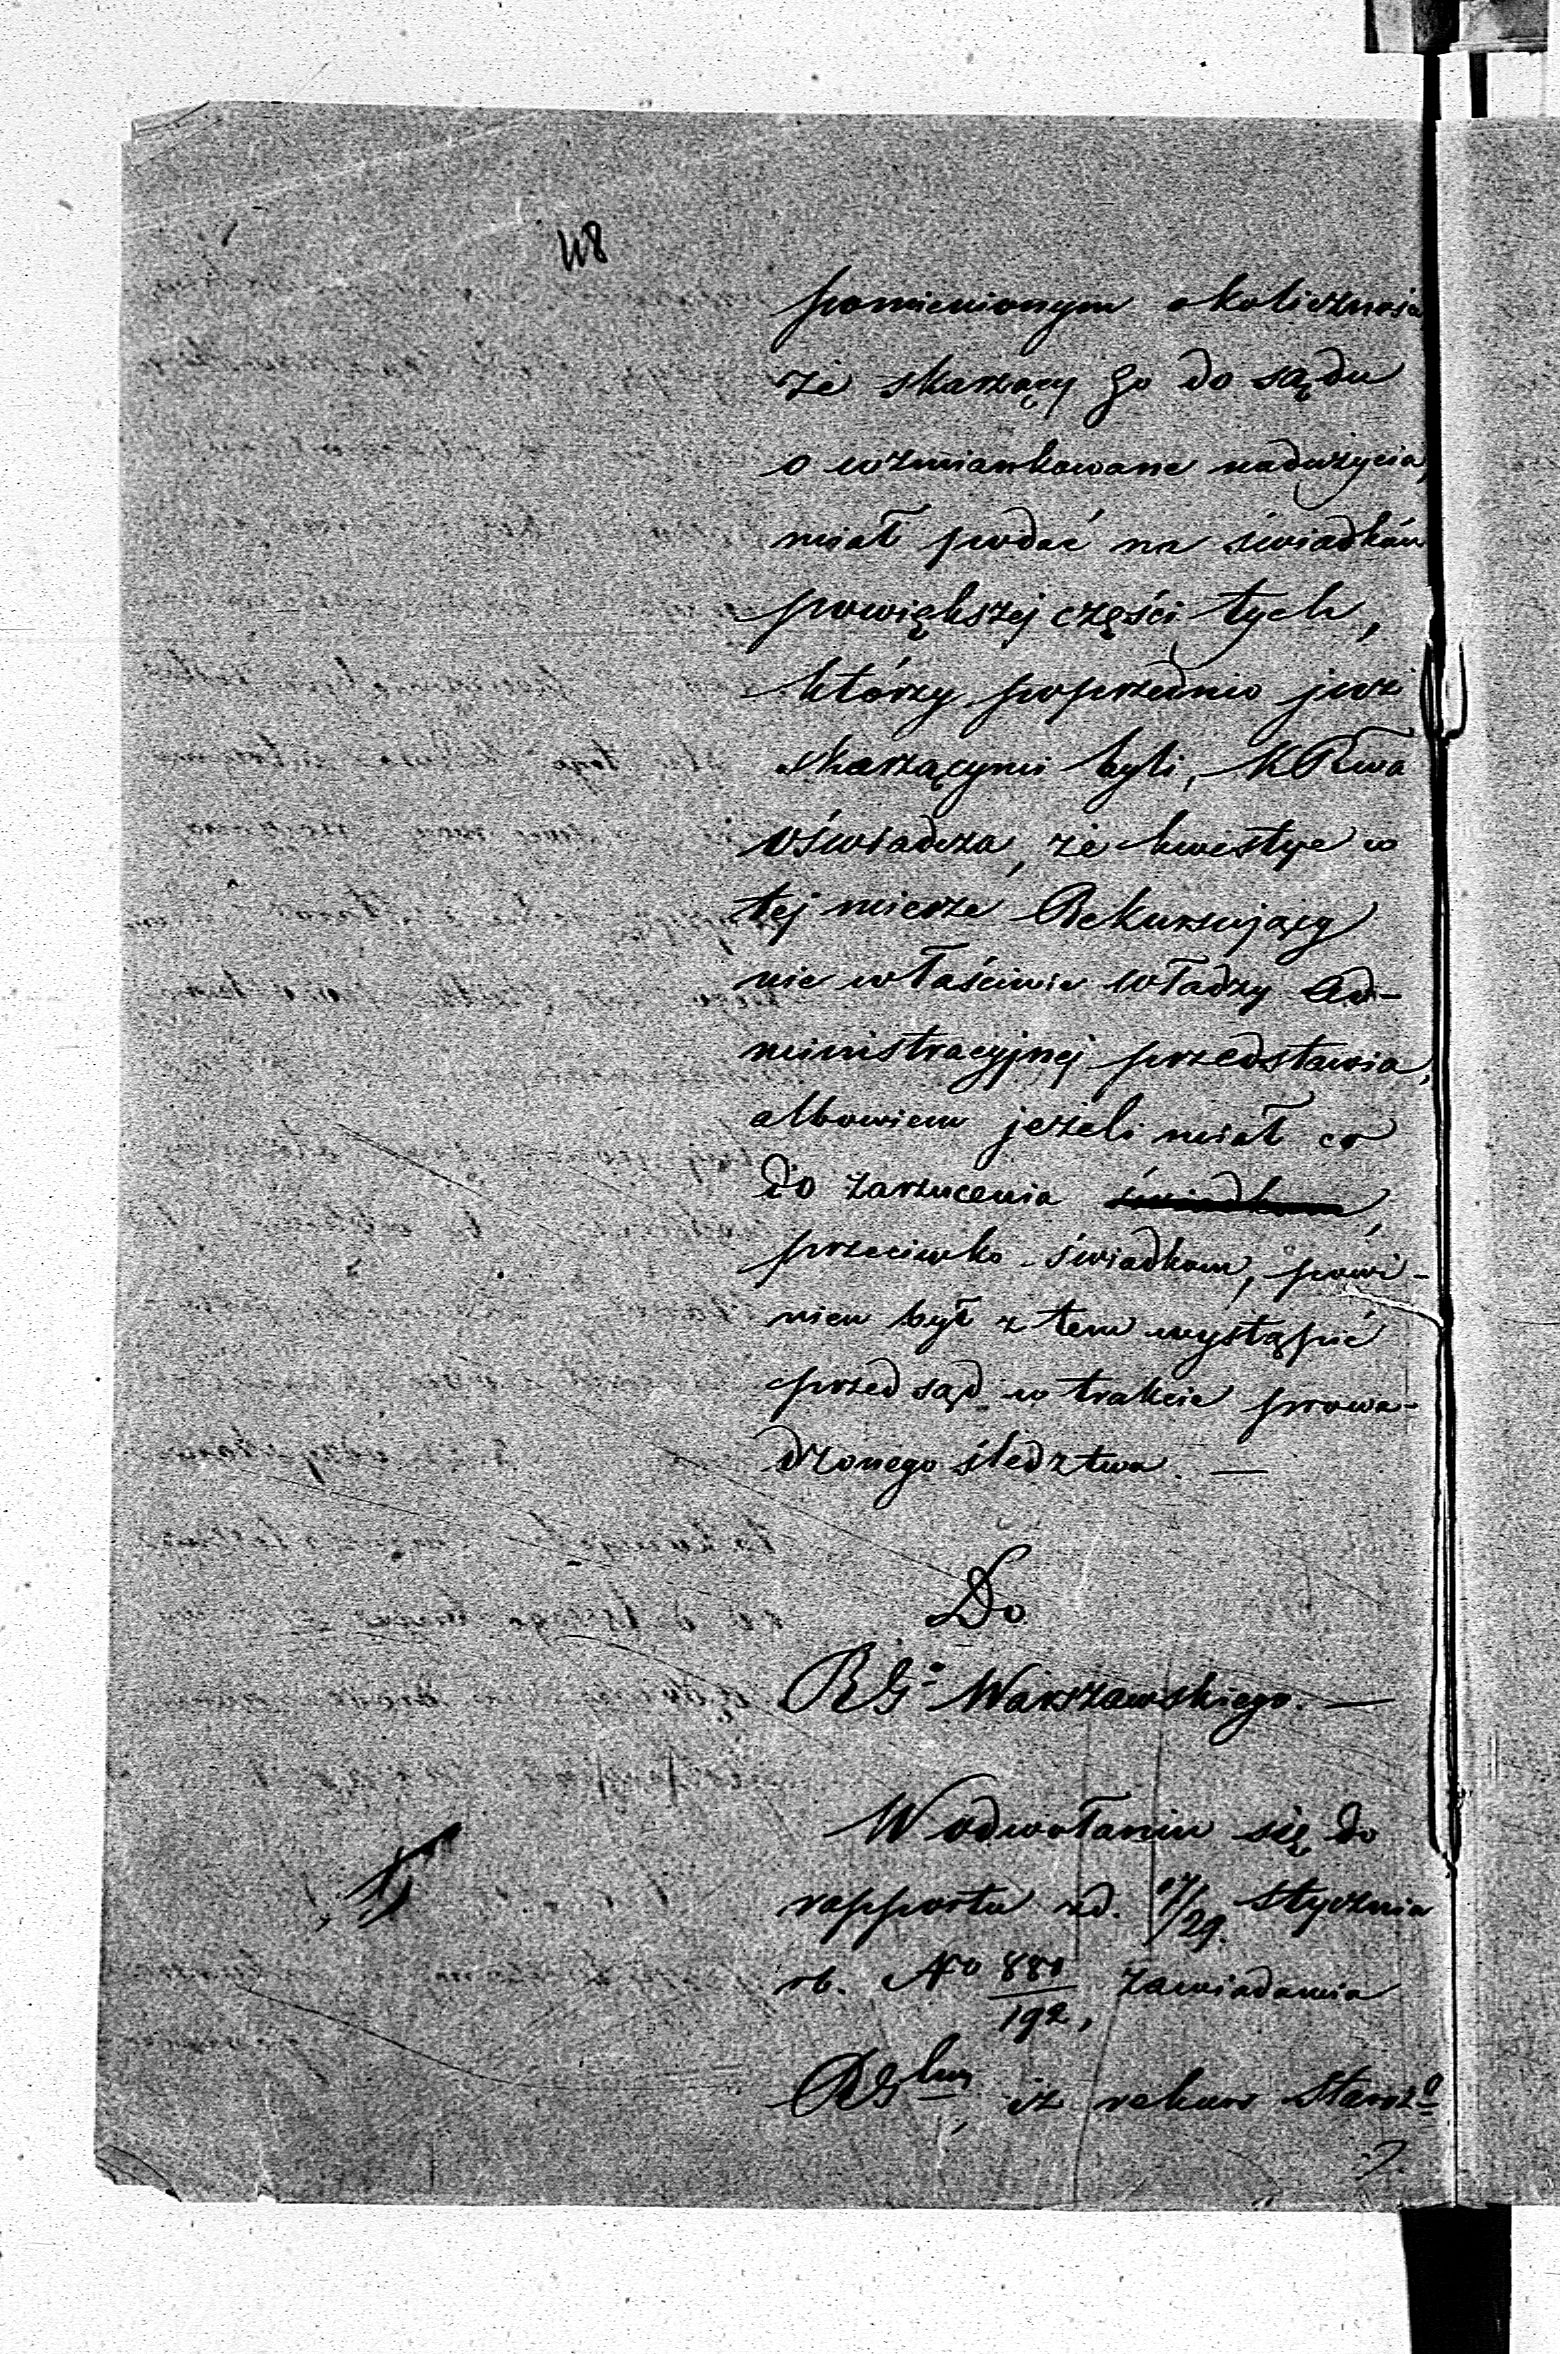 48
pomienionym okoliczności
że skarżący go do sądu
o wzmiankowane nadużycia,
miał podać na świadków
powiększej części tych,
którzy poprzednio już
skarżącymi byli, KRwa
oświadcza, że kwestye w
tej mierze Rekursujący
nie właściwie władzy Ad-
ministracyjnej przedstawia,
albowiem jeżeli miał co
do zarzucenia świadkom,
przeciwko świadkom, powi-
nien był z tem wystąpić
przed sąd w trakcie prowa-
dzonego śledztwa. —
Do
RGo Warszawskiego. —
W odwołaniu się do
rapportu zd. 17/29. Stycznia
rb. No 880/192, zawiadamia
RGlny, iż rekurs Staroz